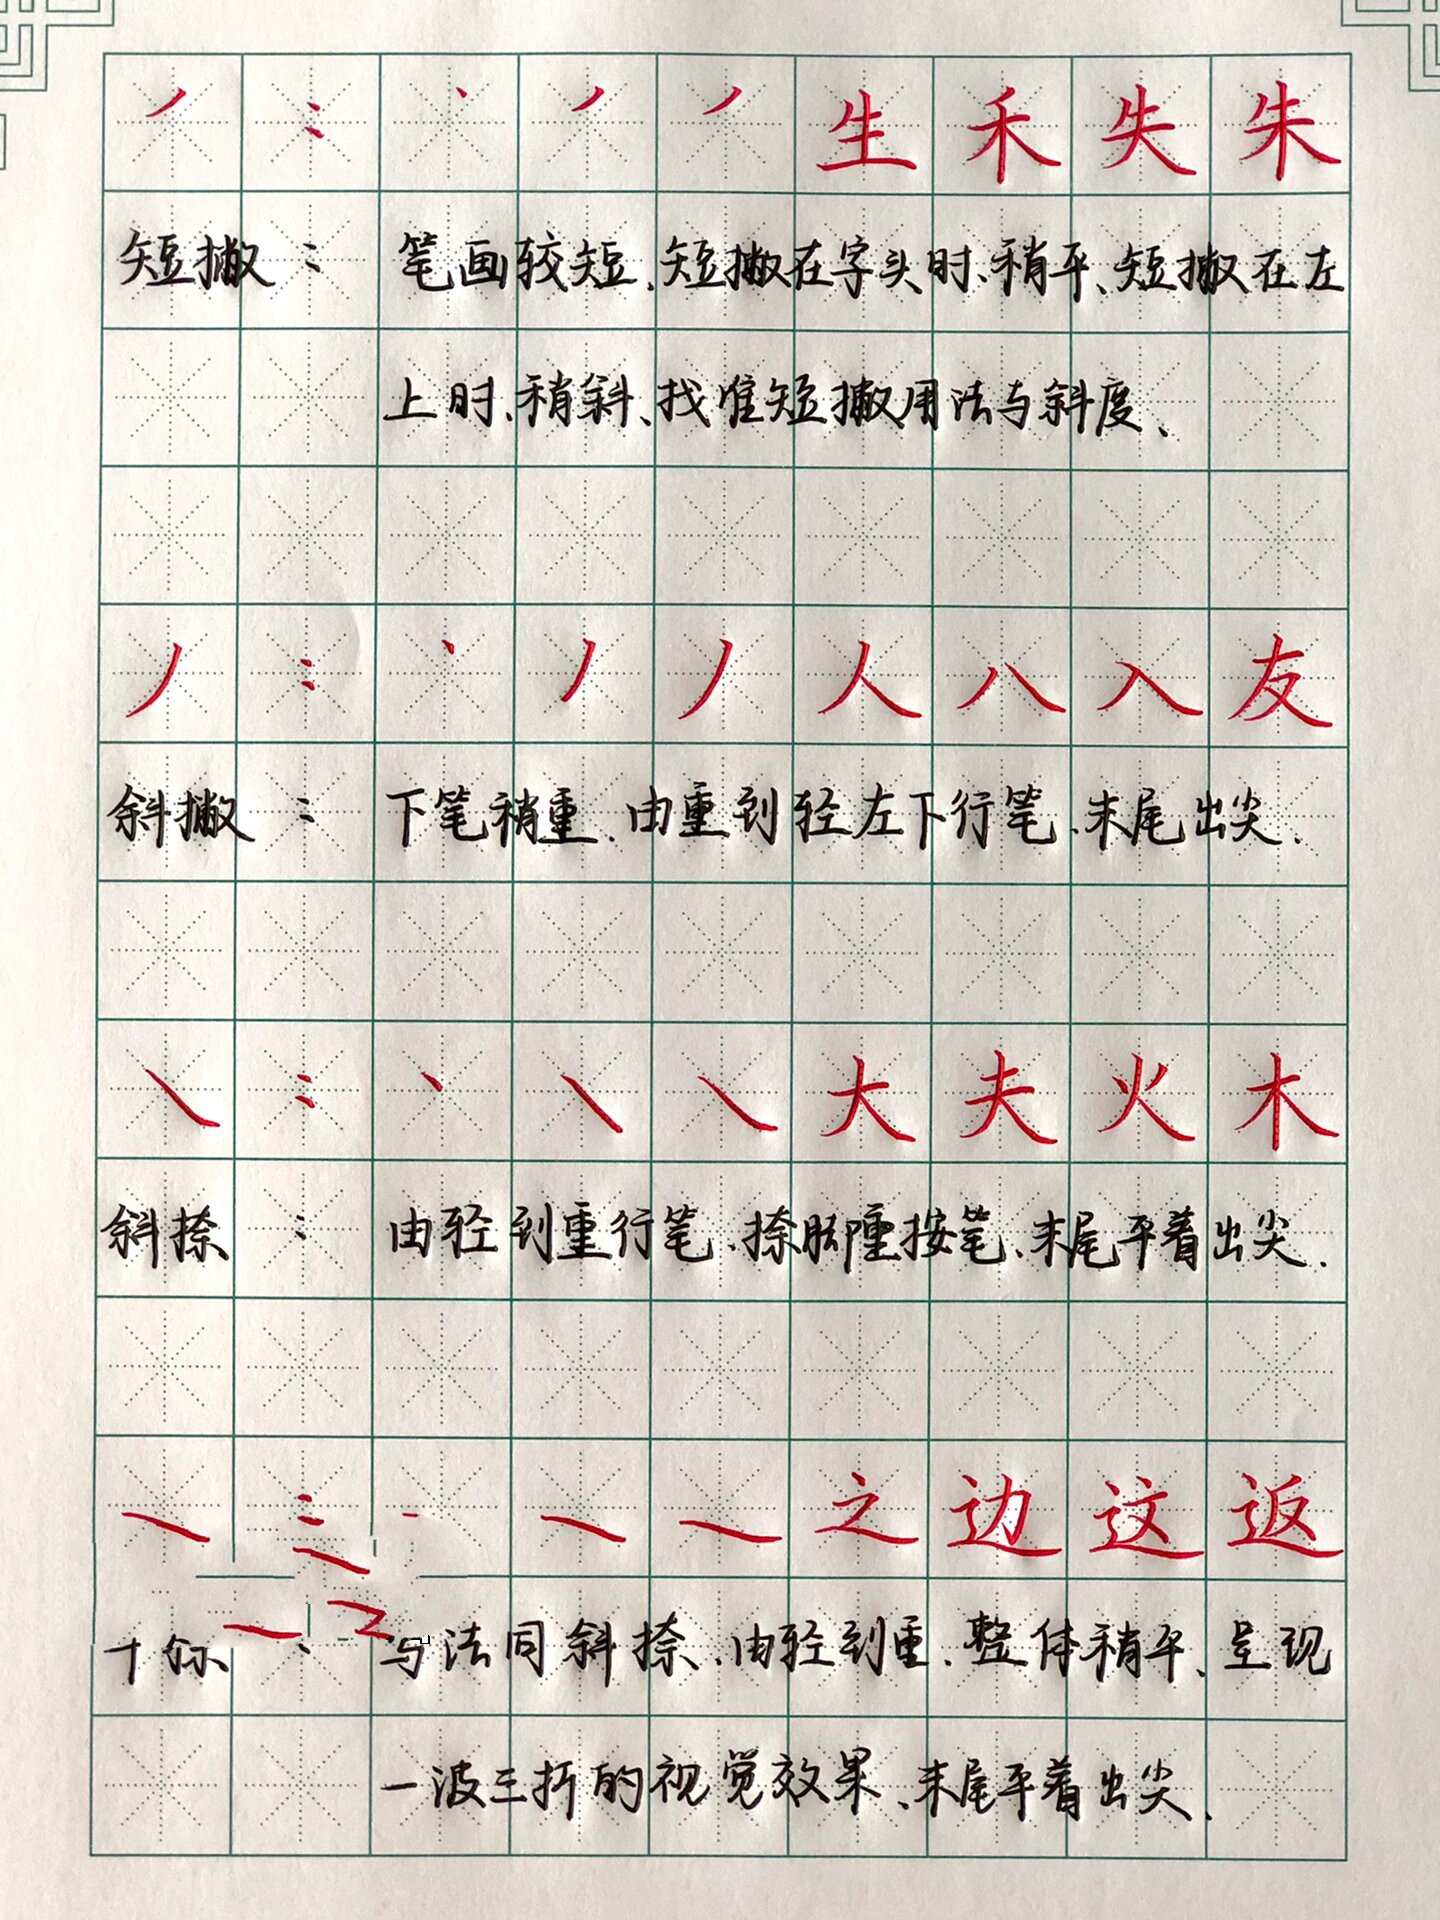 丿：丶丿丿生禾失朱
短撇：笔画较短、短撇在字头时、稍平、短撇在左
上时、稍斜、找准短撇用法与斜度、
丿：丶丿丿人八入友
斜撇：下笔稍重、由重到轻左下行笔、末尾出尖.
㇏：丶㇏㇏大夫火木
斜捺：由轻到重行笔、捺脚重按笔、末尾平着出尖.
㇏：㇏㇏之边这返
与法同斜捺、由轻到重、整体稍平、呈现
一波三折的视觉效果、末尾平着出尖.